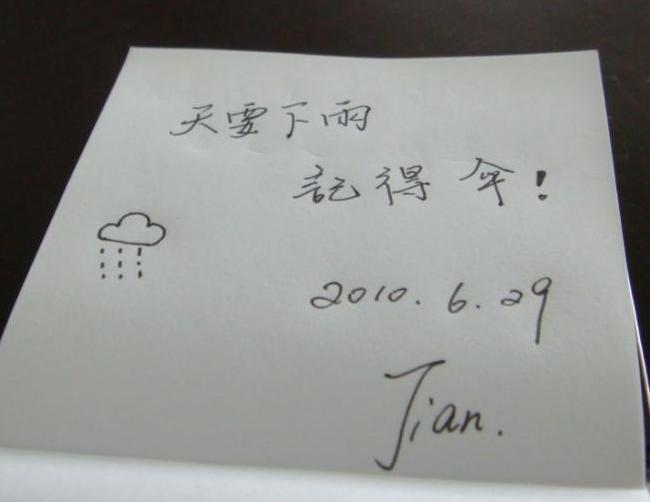 天要下雨
記得傘!
2010.6.29
Jian.